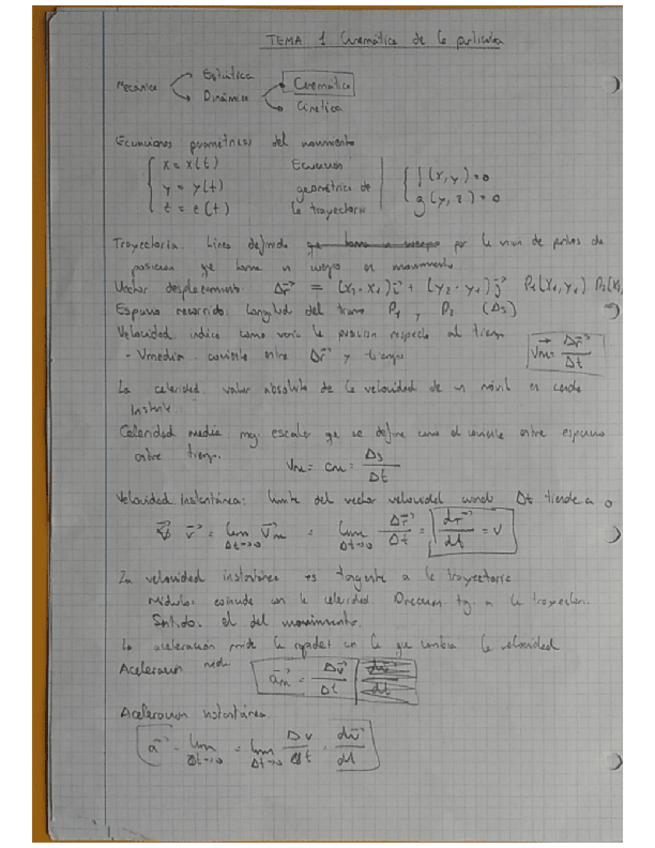 TEMA 1 Cinemática de la partícula
Mecánica Estática
Dinámica Cinemática
Cinética
Ecuaciones paramétricas del movimiento
x = x(t) Ecuación f(x,y)=0
y = y(t) geométrica de g(y,z)=0
z = z(t) la trayectoria
Trayectoria: Línea definida por la unión de puntos de
posición que toma un cuerpo en movimiento
Vector desplazamiento Δr⃗ = (x₂-x₁)i⃗ + (y₂-y₁)j⃗ P₁(x₁,y₁) P₂(x₂,
Espacio recorrido: Longitud del tramo P₁ y P₂ (Δs)
Velocidad indica como varía la posición respecto al tiempo
- Vmedia cociente entre Δr⃗ y tiempo V⃗m = Δr⃗/Δt
La celeridad valor absoluto de la velocidad de un móvil en cada
Instante
Celeridad media: mg. escalar que se define como el cociente entre espacio
entre tiempo.
Vm = cm = Δs/Δt
Velocidad Instantánea: límite del vector velocidad cuando Δt tiende a 0
v⃗ = lim Δt→0 V⃗m = lim Δt→0 Δr⃗/Δt = dr⃗/dt = v
La velocidad instantánea es tangente a la trayectoria
Módulo: coincide con la celeridad. Dirección tg. a la trayectoria.
Sentido: el del movimiento.
La aceleración mide la rapidez con la que cambia la velocidad
Aceleración media a⃗m = Δv⃗/Δt
Aceleración instantánea.
a⃗ = lim Δt→0 = lim Δt→0 Δv/Δt = dv⃗/dt